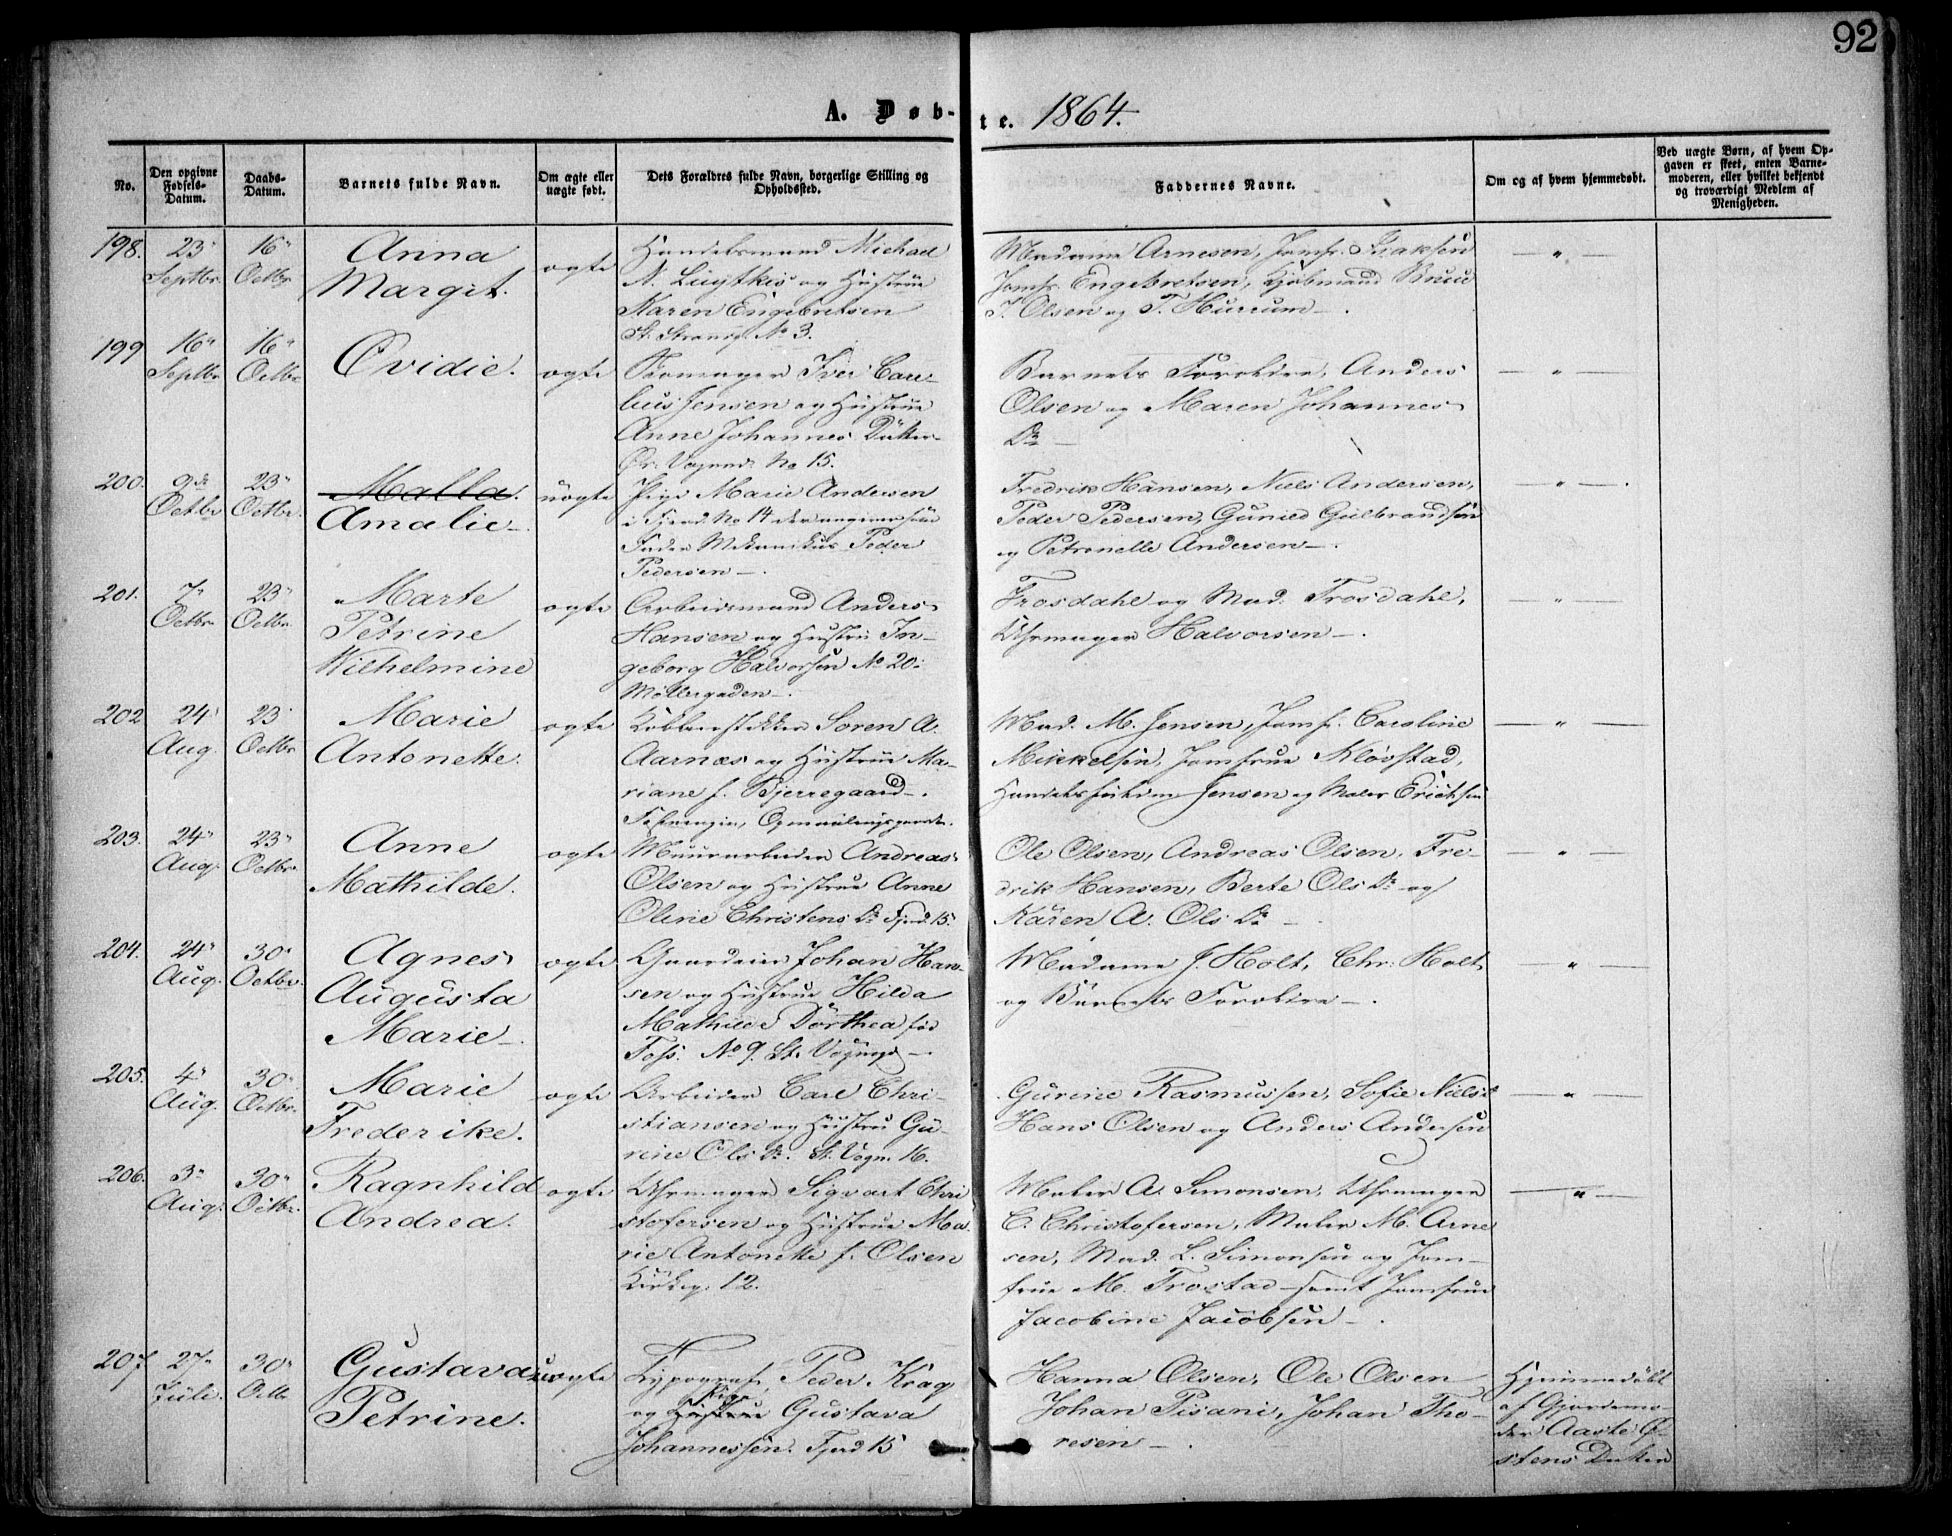 92
A. Døb-te. 1864.
No.
Den opgivne Fødsels-Datum.
Daabs-Datum.
Barnets fulde Navn.
Om ægte eller uægte født.
Dets Forældres fulde Navn, borgerlige Stilling og Opholdssted.
Faddernes Navne.
Om og af hvem hjemmedøbt.
Ved uægte Børn, af hvem Opgaven er skeet, enten Barnemoderen, eller hvilket bekjendt og troværdigt Medlem af Menigheden.
198. 23" Septbr. 16" Octbr.
Anna
Margit.
ægte
Handelsmand Michael
N. og Hustrue
Karen Engebretsen
St. Strandg. No 3.
Madame Arnesen, Jomfr. Isaksen
Jomfr. Engebretsen, Kjøbmand
T. Olsen og T. Hurrum.
— " —
199 16" Septbr 16" Octbr
Ovidie.
ægte
Skomager Iver Carelius
Jensen og Hustrue
Anne Johannes Datter
No 15.
Barnets Forældre, Anders
Olsen og Maren Johannes
Dr.
— " —
200. 9de Octbr 23" Octbr.
Malla.
Amalie
uægte
Pige Marie Andersen
i Fjerd. No 14 der angiver som
Fader Mekanikus Peder
Pedersen
Fredrik Hansen, Niels Andersen,
Peder Pedersen, Gulbrandsen
og Petronelle Andersen
— " —
201. 7" Octbr. 23" Octbr.
Marte
Petrine
Wilhelmine
ægte
Arbeidsmand Anders
Hansen og Hustru In-
geborg Halvorsen No 20
Møllergaden
Frosdahl og Mad. Frosdahl,
Uhrmager Halvorsen
— " —
202 24 Aug. 23 Octbr
Marie
Antonette.
ægte
Kobberstikker Soren A.
Aarnæs og Hustrue Ma-
riane f. Bjerregaard.
Opmaalingsgaarden.
Mad. M. Jensen, Jomfr. Caroline
Mikkelsen, Jomfrue Kløvstad,
Jensen og Maler Erichsen
— " —
203. 24" Aug. 23" Octbr.
Anne
Mathilde.
ægte
Muurarbeider Andreas
Olsen og Hustrue Anne
Oline Christens Dr. Fjerd. 15.
Ole Olsen, Andreas Olsen, Fre-
drik Hansen, Berte Ols Dr. og
Karen A. Ols Dr.
— " —
204. 24" Aug. 30" Octbr.
Agnes
Augusta
Marie
ægte
Gaardeier Johan Han-
sen og Hustrue Hilda
Mathilde Dorthea fød
Foss. No 9. St.
Madame J. Holt, Chr. Holt
og Barnets Forældre
— " —
205. 4" Aug. 30" Octbr.
Marie
Frederike.
ægte
Arbeider Carl Chri-
stiansen og Hustru Gu-
rine Ols Dr. St. Vogn. 16.
Gurine Rasmussen, Sofie Niels
Hans Olsen og Anders Andersen
— " —
206. 3" Aug. 30" Octbr.
Ragnhild
Andrea.
ægte
Uhrmager Sigvart Chri
stofersen og Hustrue Ma
rie Antonette f. Olsen
Kirkeg. 12.
Maler A. Simonsen, Uhrmager
C. Christofersen, Maler M. Arne
sen, Mad. L. Simonsen og Jom-
frue M. Frostad samt Jomfrue
Jacobine Jacobsen
— " —
207. 27" Juli. 30" Octbr
Gustava
Petrine.
uægte
Typograf Peder Krag
og Hustrue Pige Gustava
Johannessen. Fjerd 15
Hanna Olsen, Ole Olsen
Johan Pisani, Johan Tho-
resen
Hjemmedøbt
af Gjordemo-
der Aaste Ø-
stens Datter